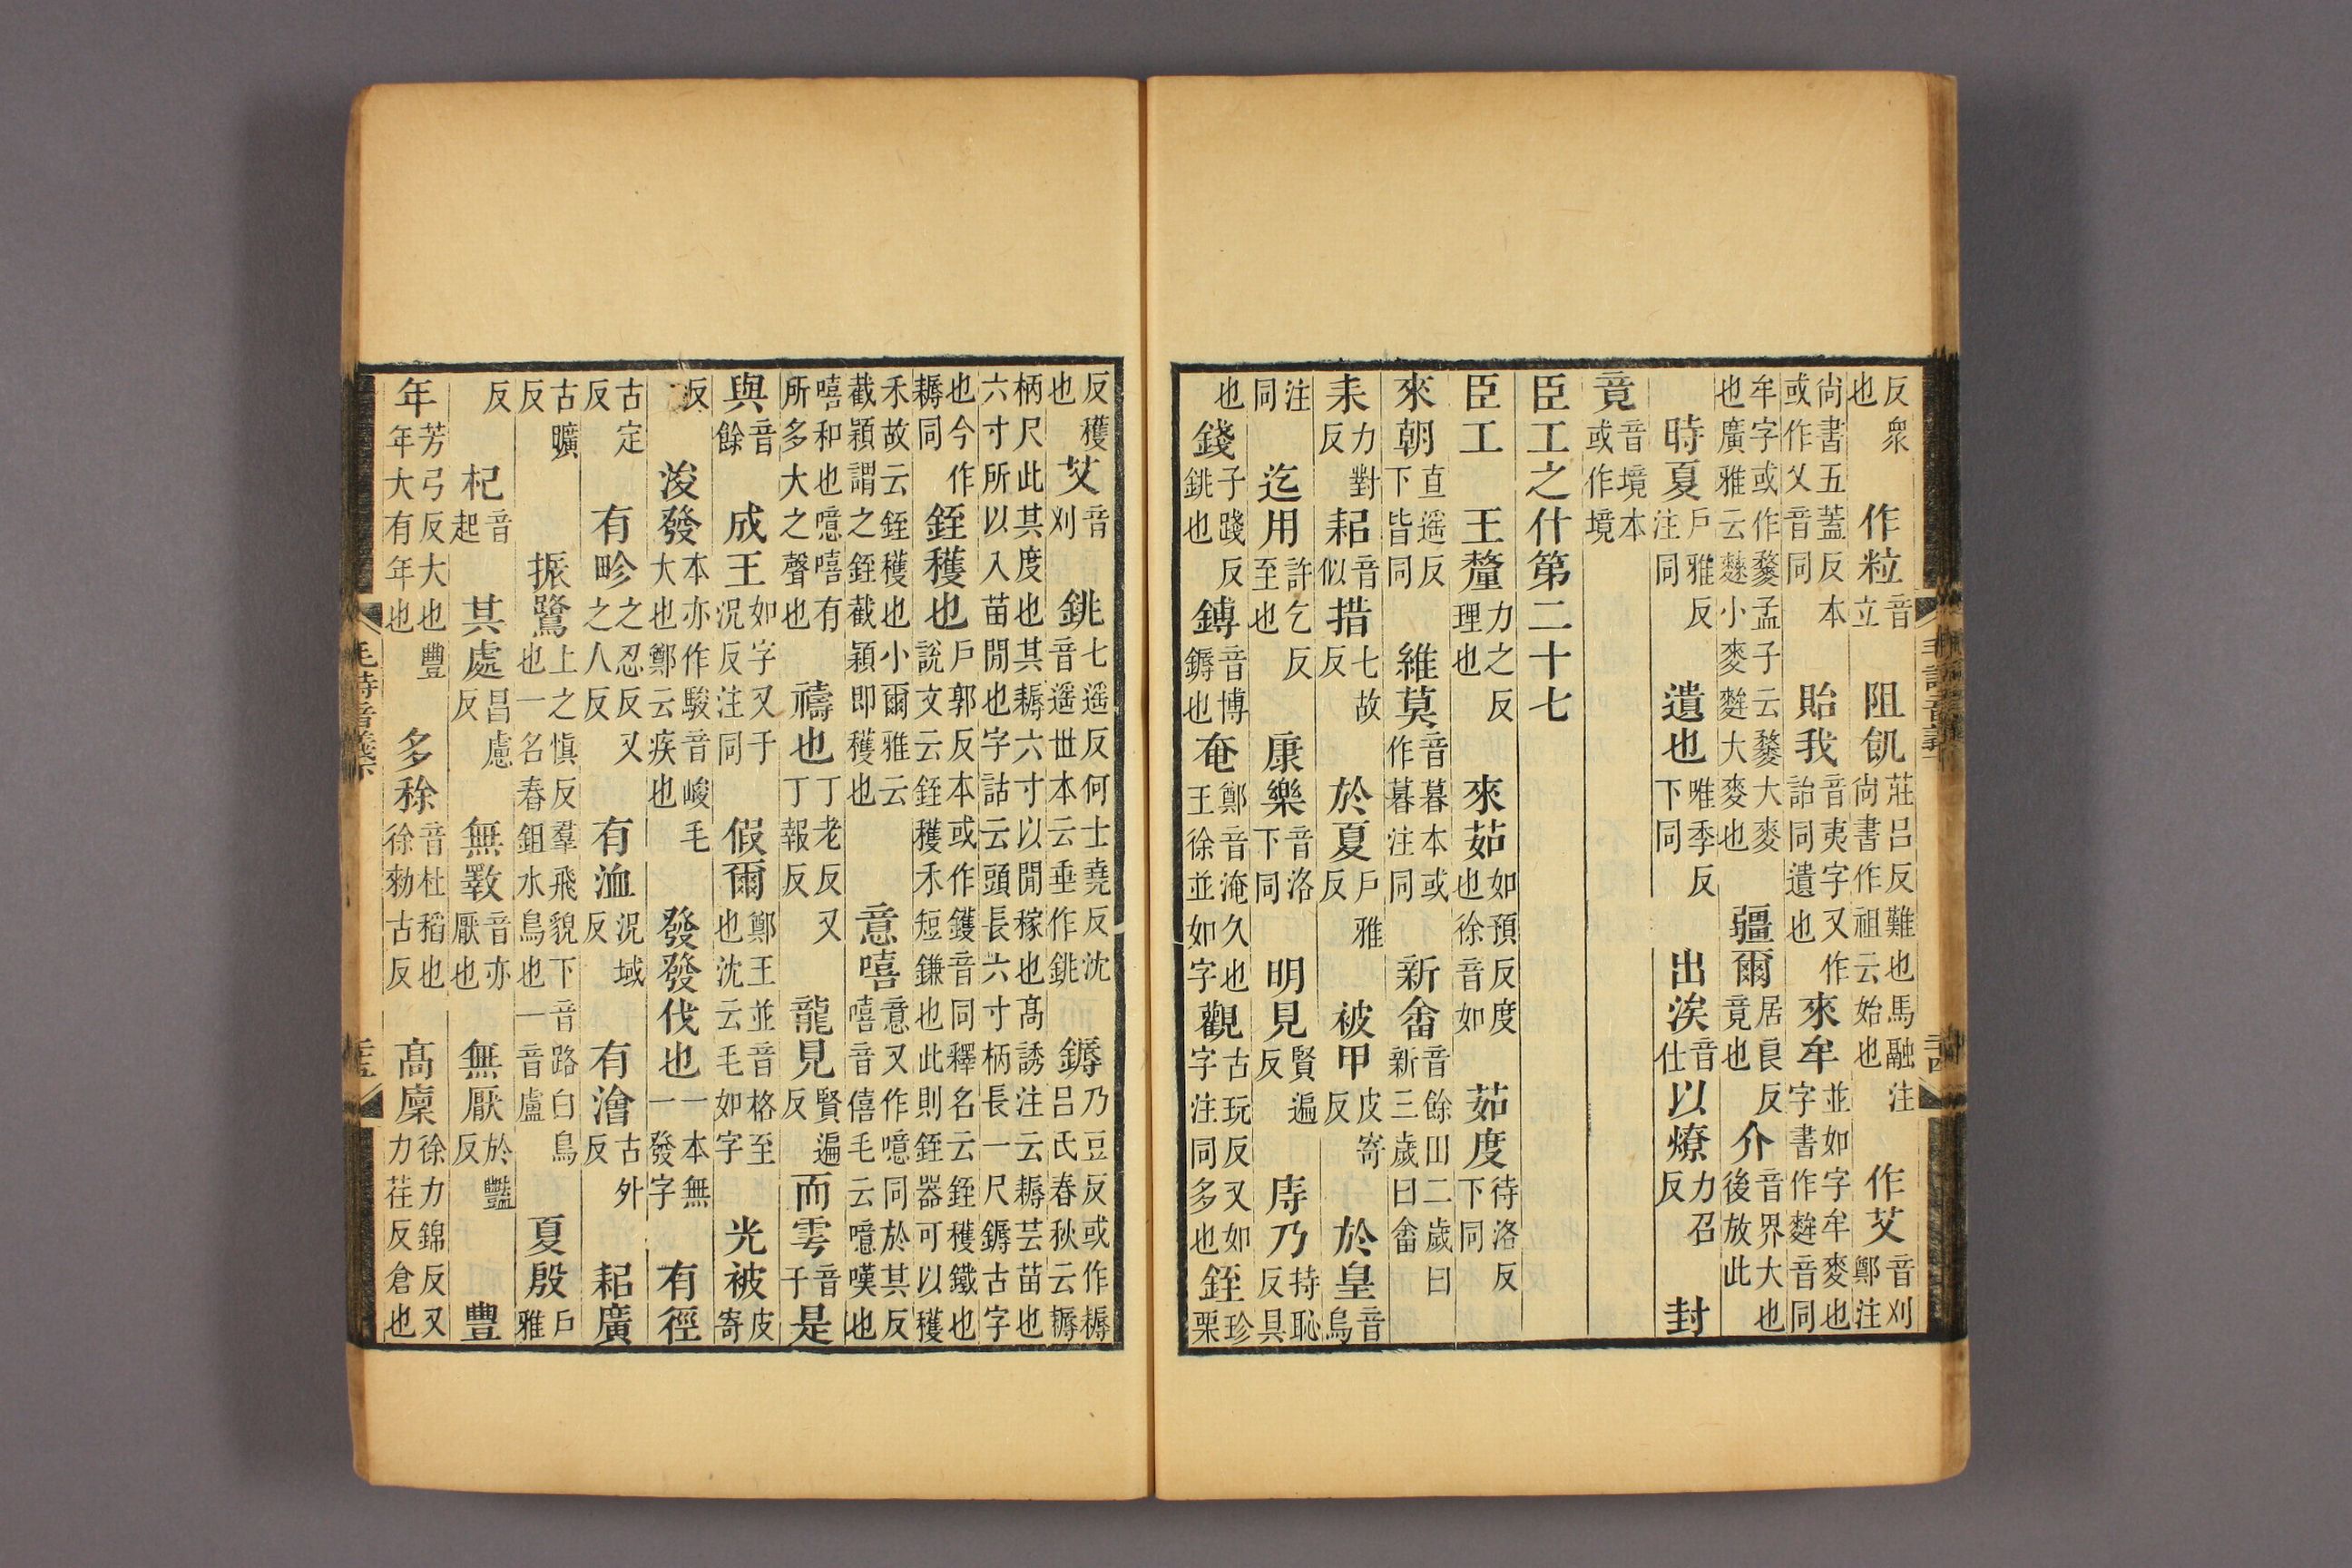 反衆也作粒音立阻飢莊呂反難也馬融注尚書作祖云始也作艾音刈鄭注
尚書五蓋反本或作乂音同貽我音夷字又作詒同遺也來牟並如字牟麥也字書作麰音同
牟字或作孟子云大麥也廣雅云䴭小麥麰大麥也疆爾居良反竟也介音界大也後放此
時夏戶雅反注同遺也唯季反下同出涘音仕以燎力召反封
竟音境本或作境
臣工之什第二十七
臣工王釐力之反理也來茹如預反度也徐音如茹度待洛反下同
來朝直遥反下皆同維莫音暮本或作暮注同新畬音餘田二歲曰新三歲曰畬
耒力對反耜音似措七故反於夏戶雅反被甲皮寄反於皇音烏
注同迄用許乞反至也康樂音洛下同明見賢遍反庤乃持恥反具
也錢子踐反銚也鎛音博鎒也奄鄭音淹久也王徐並如字觀古玩反又如字注同多也銍珍栗
反穫也艾音刈銚七遥反何士堯反沈音遥丗本云垂作銚鎒乃豆反或作槈呂氏春秋云耨
柄尺此其度也其耨六寸以閒稼也高誘注云耨芸苗也六寸所以入苗閒也字詁云頭長六寸柄長一尺鎒古字
也今作耨同銍穫也戶郭反本或作鑊音同釋名云銍穫鐵也說文云銍穫禾短鎌也此則銍器可以穫
禾故云銍穫也小爾雅云截穎謂之銍截穎即穫也意嘻意又作噫同於其反嘻音僖毛云噫嘆也
嘻和也噫嘻有所多大之聲也禱也丁老反又丁報反龍見賢遍反而雩音于是
與音餘成王如字又于况反注同假爾鄭王並音格至也沈云毛如字光被皮寄
反浚發本亦作駿音峻毛大也鄭云疾也發發伐也一本無一發字有徑
古定反有畛之忍反又之人反有洫况域反有澮古外反耜廣
古曠反振鷺上之慎反羣飛貌下音路白鳥也一名舂鉏水鳥也一音盧夏殷戶雅
反杞音起其處昌慮反無斁音亦厭也無厭於豔反豐
年芳弓反大也豐年大有年也多稌音杜稻也徐勑古反高廩徐力錦反又力荏反倉也